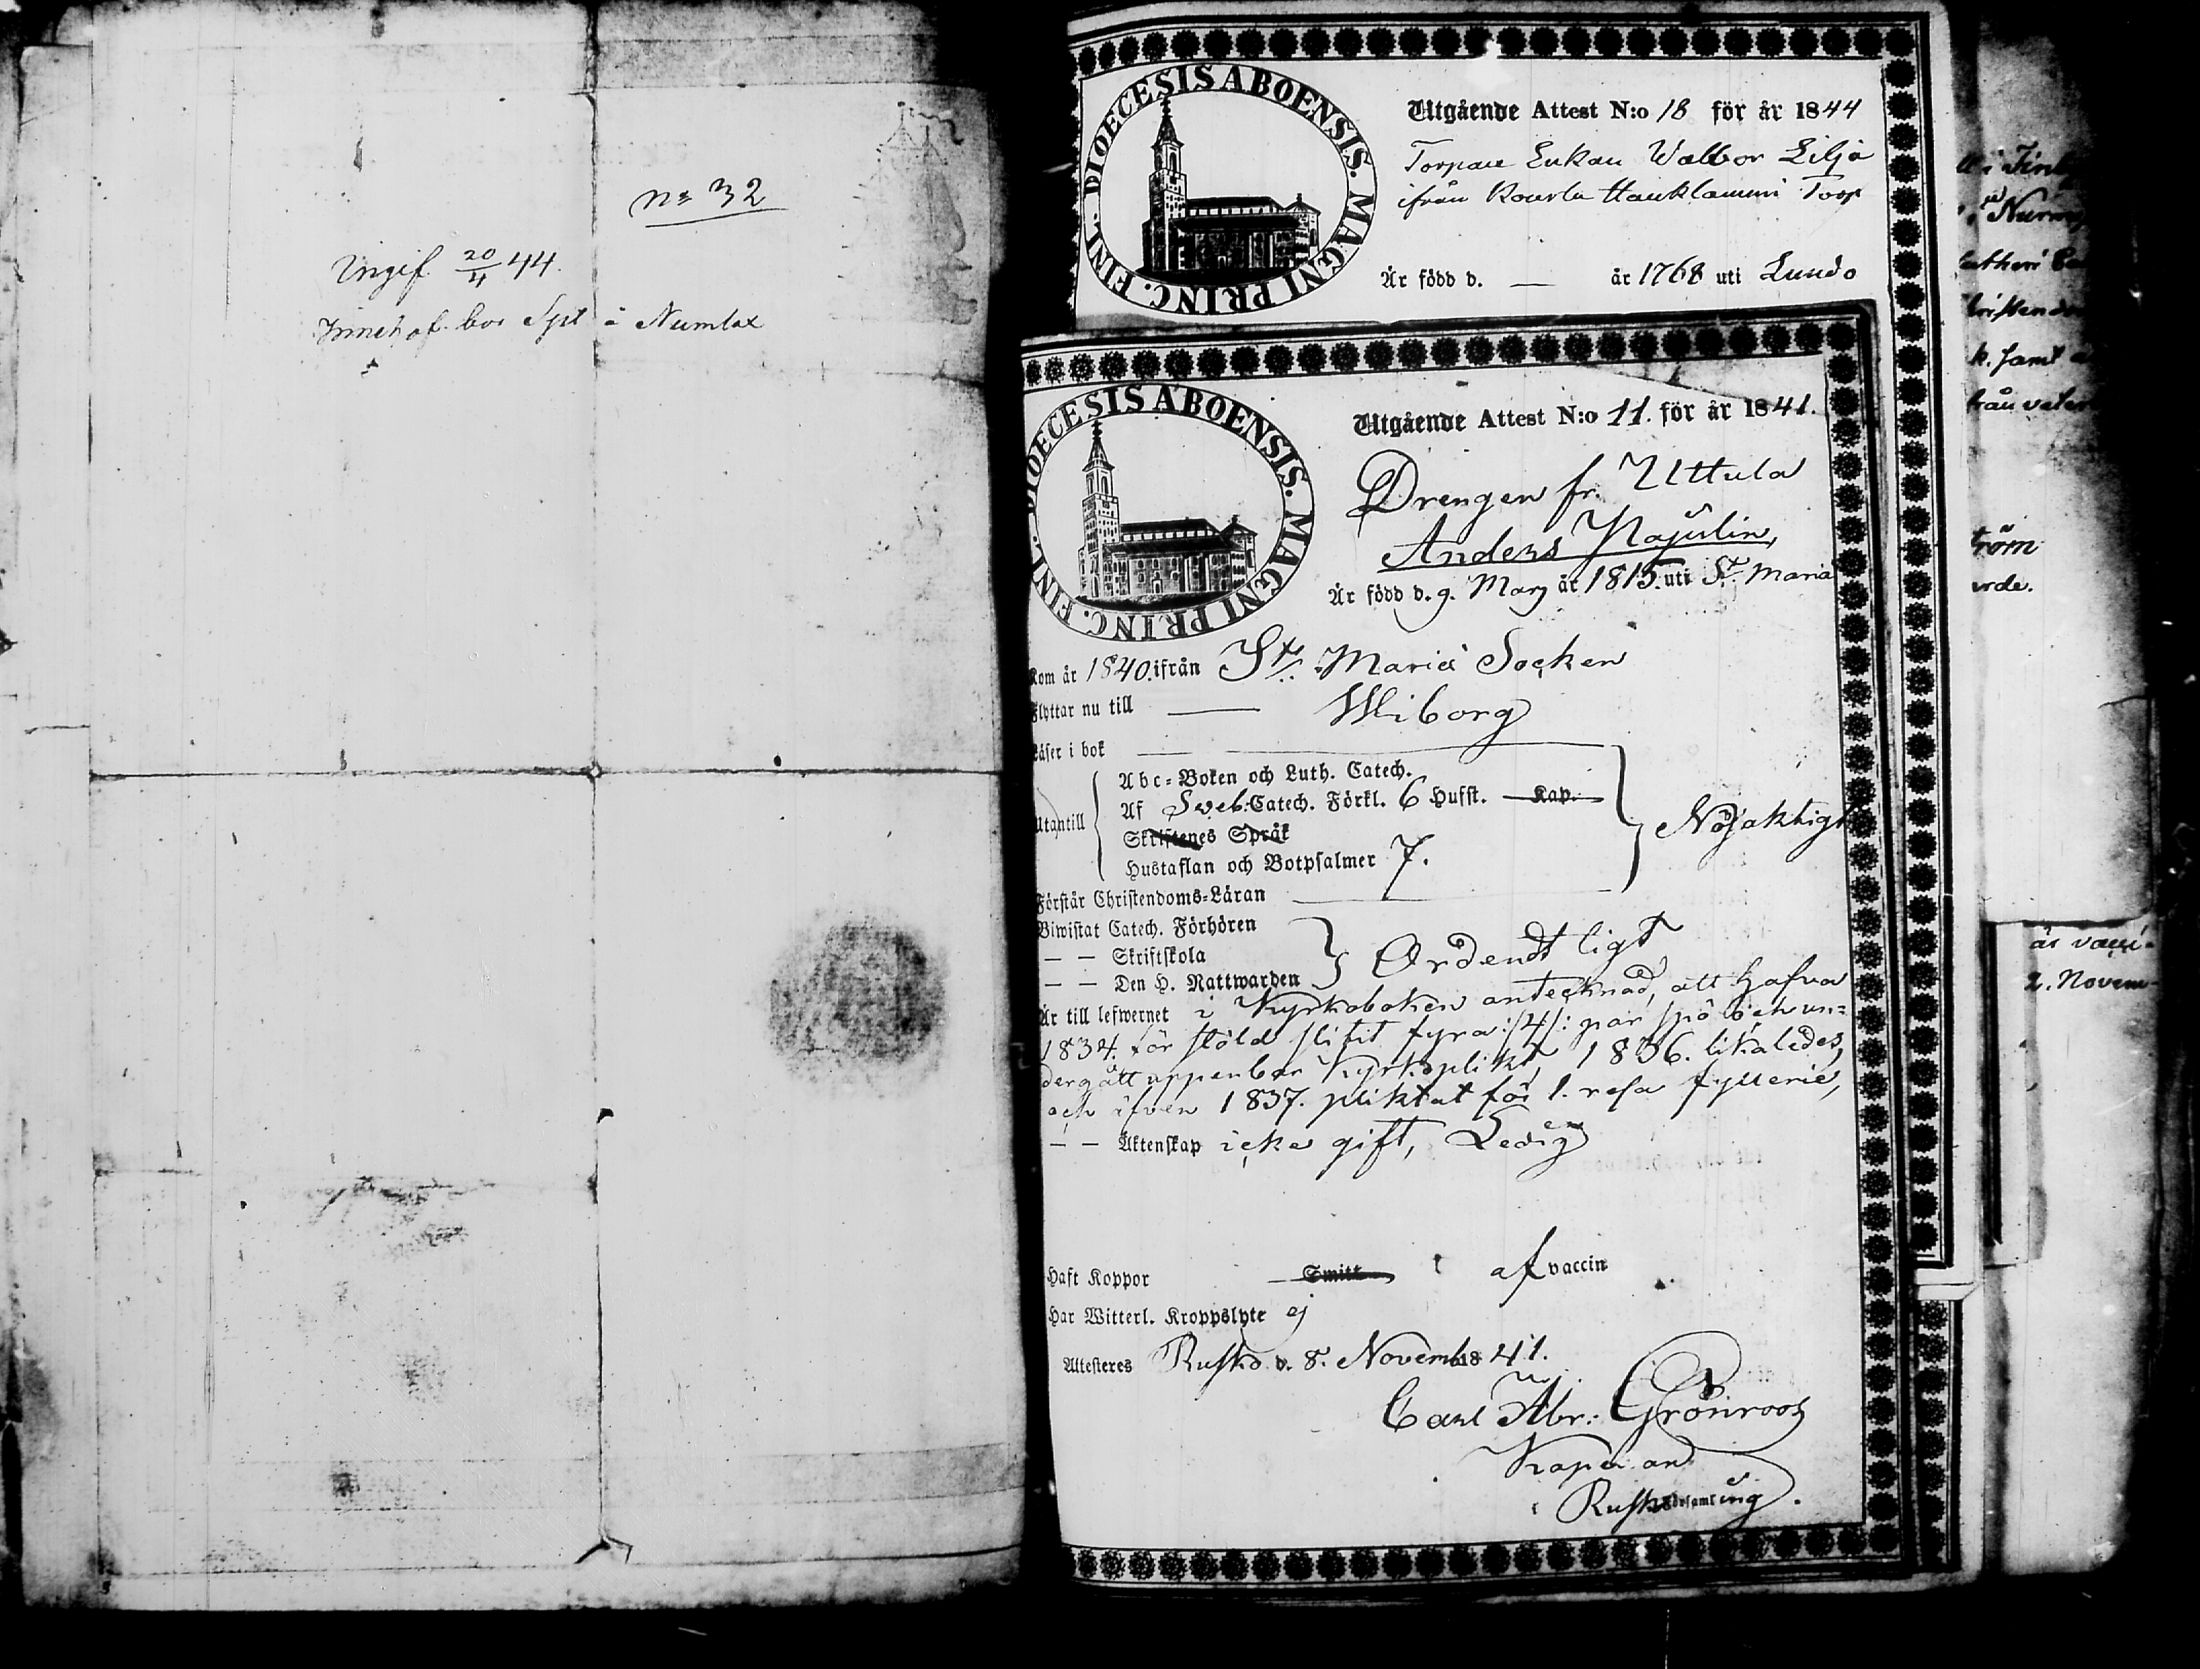 N:o 32
Ingif. 20/4 44.
å Numlax
DIOECESIS ABOENSIS. MAGNI PRINC. FINL.
Utgående Attest N:o 18 för år 1844
Torpare Enkan Walbor Lilja
ifrån Hauklammi Torp
Är född d. — år 1768 uti Lundo
DIOECESIS ABOENSIS. MAGNI PRINC. FINL.
Utgående Attest N:o 11. för år 1841.
Drengen fr. Uttula
Anders Majulin,
Är född d. 9. Marz år 1815. uti S:t Maria
Kom år 1840. ifrån S:t Mariæ Socken
Flyttar nu till — Wiborg
Läser i bok —
Utantill
Abc-Boken och Luth. Catech.
Af Sveb: Catech. Förkl. 6 Hufst. Kap.
Skriftenes Språk
Hustaflan och Botpsalmer 7.
Nöjaktigt
Förstår Christendoms-Läran —
Biwistat Catech. Förhören
— — Skriftskola
— — Den H. Nattwarden
Ordendtligt
Är till lefwernet i Kyrkoboken antecknad, att hafva
1834. för stöld slitit fyra :/4/: par spö och un-
dergått uppenbar Kyrkoplikt, 1836. likaledes,
och äfven 1837. pliktat för 1. resa fyllerie,
— — Äktenskap icke gift, Ledig
Haft Koppor Smitt af vaccin
Har Witterl. Kroppslyte ej
Attesteres Rusko d. 8. Novemb. 1841.
Carl Abr: Grönroos
Kapellan
i Rusko Församling.
tröm
är vacci-
2. Novem-